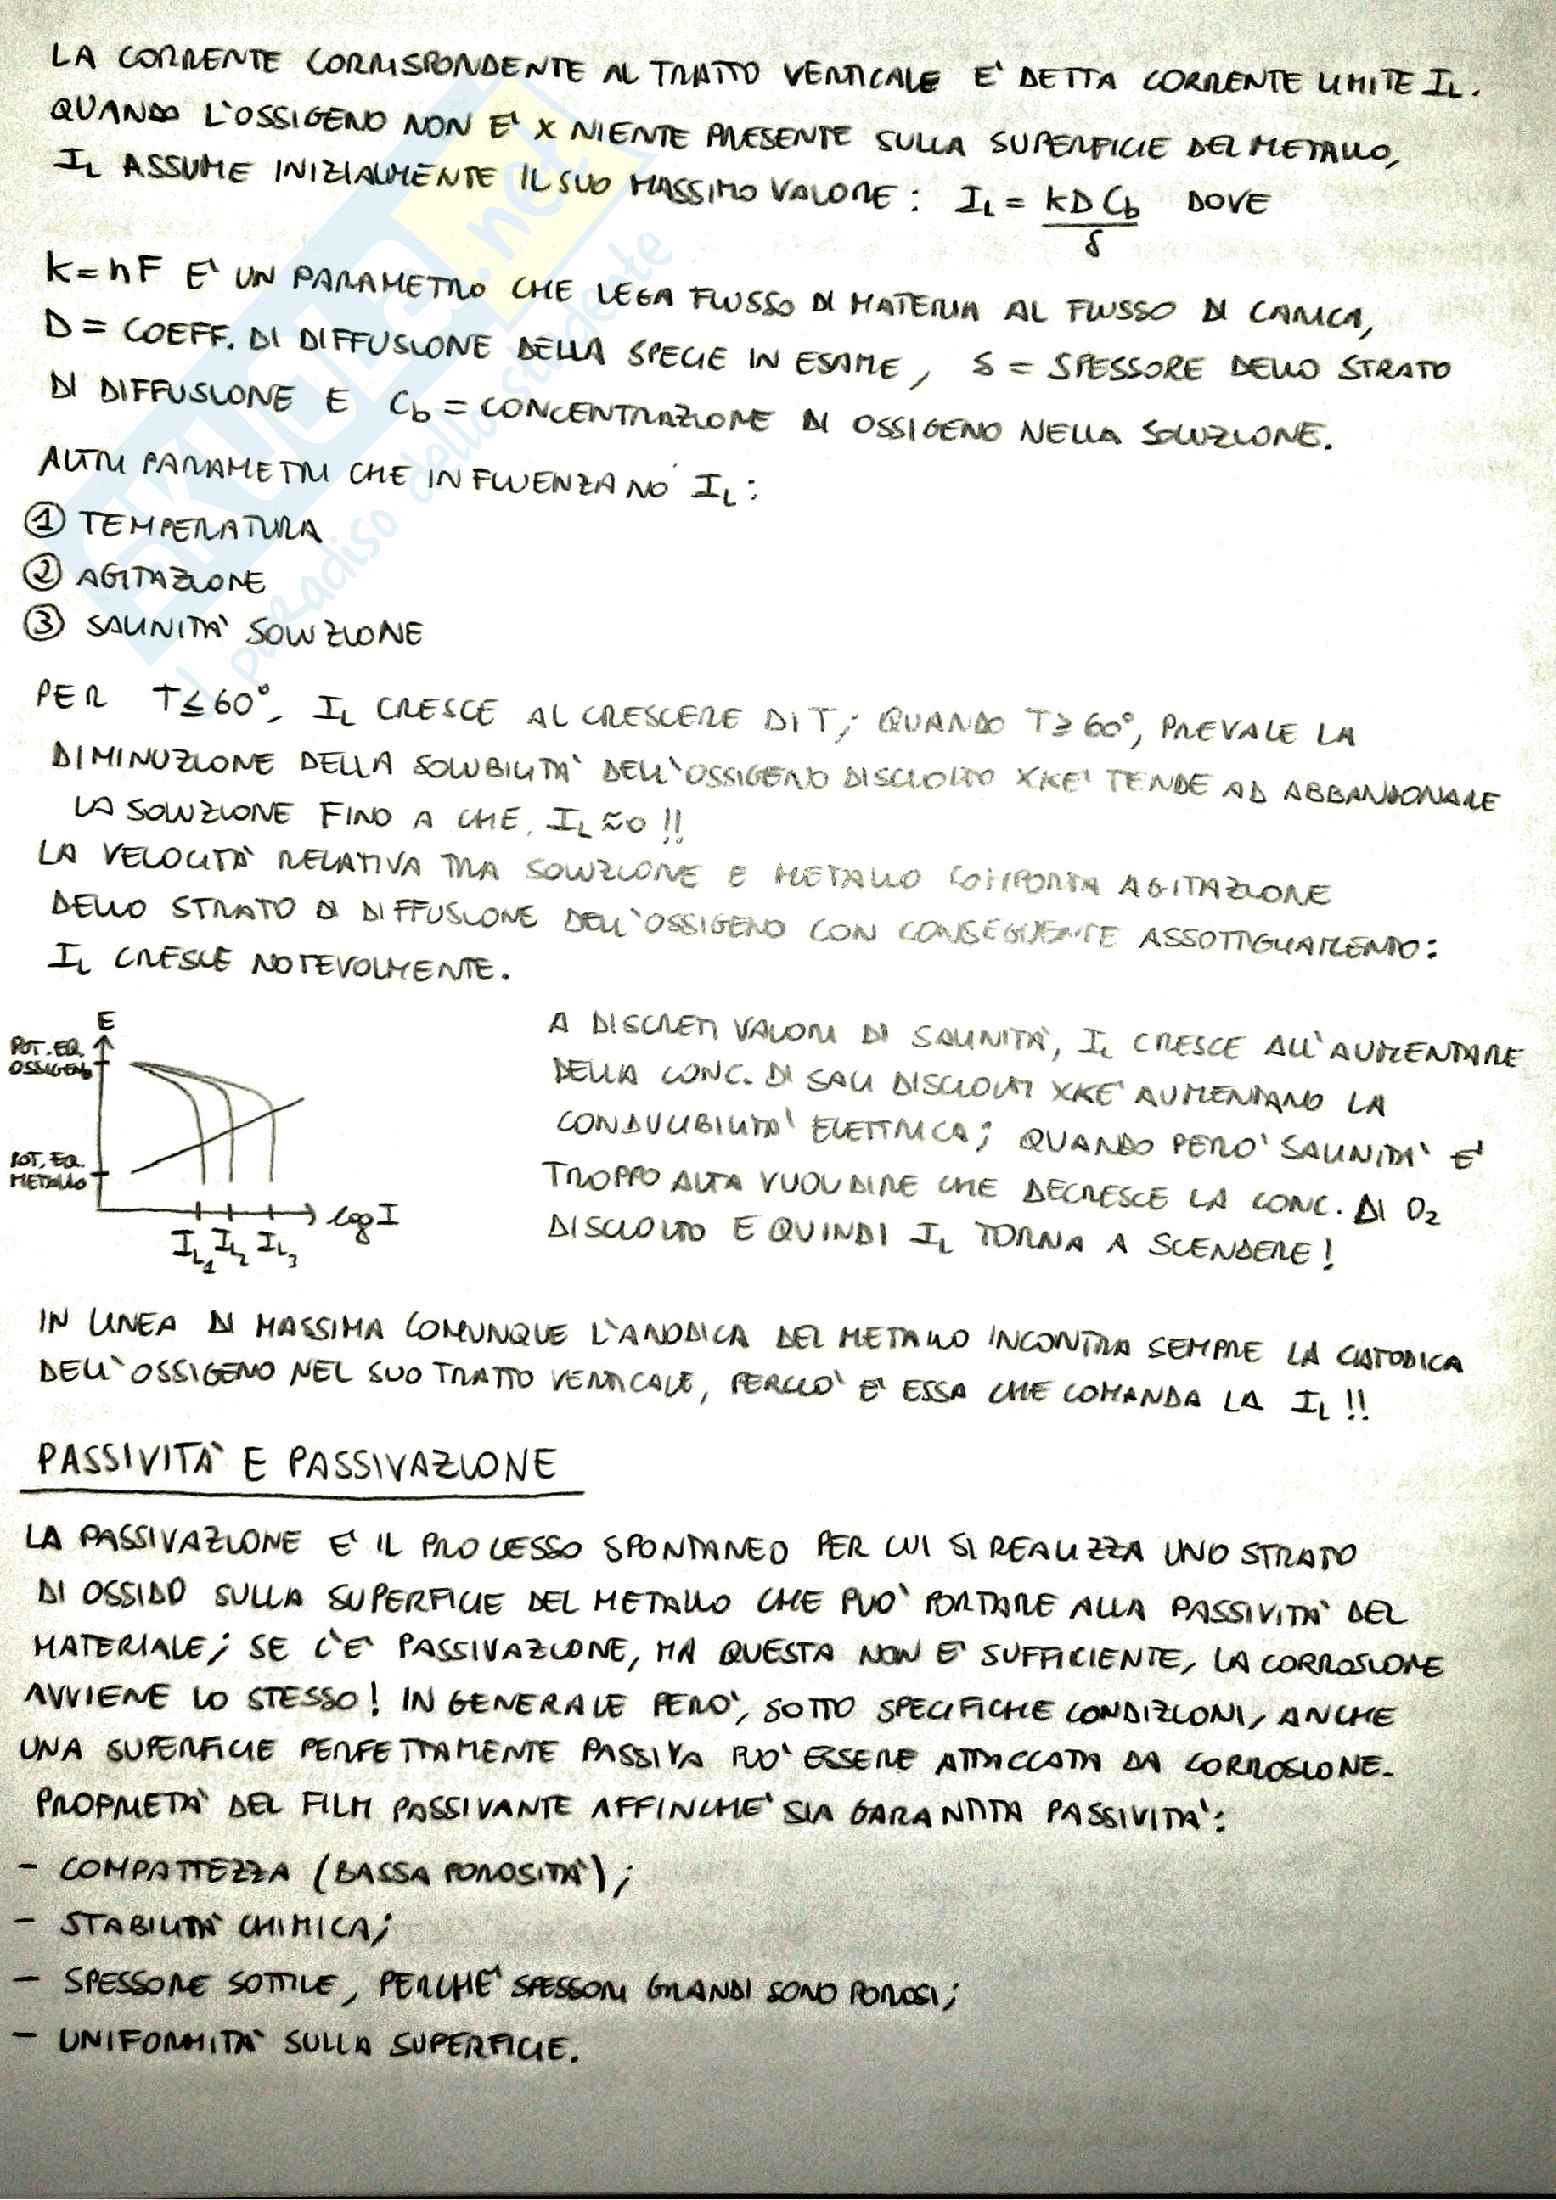 LA CORRENTE CORRISPONDENTE AL TRATTO VERTICALE E' DETTA CORRENTE LIMITE IL.
QUANDO L'OSSIGENO NON E' X NIENTE PRESENTE SULLA SUPERFICIE DEL METALLO,
IL ASSUME INIZIALMENTE IL SUO MASSIMO VALORE: IL = kD Cb / δ DOVE
k=nF E' UN PARAMETRO CHE LEGA FLUSSO DI MATERIA AL FLUSSO DI CARICA,
D = COEFF. DI DIFFUSIONE DELLA SPECIE IN ESAME, δ = SPESSORE DELLO STRATO
DI DIFFUSIONE E Cb = CONCENTRAZIONE DI OSSIGENO NELLA SOLUZIONE.
ALTRI PARAMETRI CHE INFLUENZANO IL:
① TEMPERATURA
② AGITAZIONE
③ SALINITA' SOLUZIONE
PER T≤60°, IL CRESCE AL CRESCERE DI T; QUANDO T≥60°, PREVALE LA
DIMINUZIONE DELLA SOLUBILITA' DELL'OSSIGENO DISCIOLTO XKE' TENDE AD ABBANDONARE
LA SOLUZIONE FINO A CHE IL≈0!!
LA VELOCITA' RELATIVA TRA SOLUZIONE E METALLO COMPORTA AGITAZIONE
DELLO STRATO DI DIFFUSIONE DELL'OSSIGENO CON CONSEGUENTE ASSOTTIGLIAMENTO:
IL CRESCE NOTEVOLMENTE.
E
POT. EQ.
OSSIGENO
POT. EQ.
METALLO
log I
IL1 IL2 IL3
A DISCRETI VALORI DI SALINITA', IL CRESCE ALL'AUMENTARE
DELLA CONC. DI SALI DISCIOLTI XKE' AUMENTANO LA
CONDUCIBILITA' ELETTRICA; QUANDO PERO' SALINITA' E'
TROPPO ALTA VUOL DIRE CHE DECRESCE LA CONC. DI O2
DISCIOLTO E QUINDI IL TORNA A SCENDERE!
IN LINEA DI MASSIMA COMUNQUE L'ANODICA DEL METALLO INCONTRA SEMPRE LA CATODICA
DELL'OSSIGENO NEL SUO TRATTO VERTICALE, PERCIO' E' ESSA CHE COMANDA LA IL!!
PASSIVITA' E PASSIVAZIONE
LA PASSIVAZIONE E' IL PROCESSO SPONTANEO PER CUI SI REALIZZA UNO STRATO
DI OSSIDO SULLA SUPERFICIE DEL METALLO CHE PUO' PORTARE ALLA PASSIVITA' DEL
MATERIALE; SE C'E' PASSIVAZIONE, MA QUESTA NON E' SUFFICIENTE, LA CORROSIONE
AVVIENE LO STESSO! IN GENERALE PERO', SOTTO SPECIFICHE CONDIZIONI, ANCHE
UNA SUPERFICIE PERFETTAMENTE PASSIVA PUO' ESSERE ATTACCATA DA CORROSIONE.
PROPRIETA' DEL FILM PASSIVANTE AFFINCHE' SIA GARANTITA PASSIVITA':
- COMPATTEZZA (BASSA POROSITA');
- STABILITA' CHIMICA;
- SPESSORE SOTTILE, PERCHE' SPESSORI GRANDI SONO POROSI;
- UNIFORMITA' SULLA SUPERFICIE.
SKUOLA.net
il paradiso dello studente